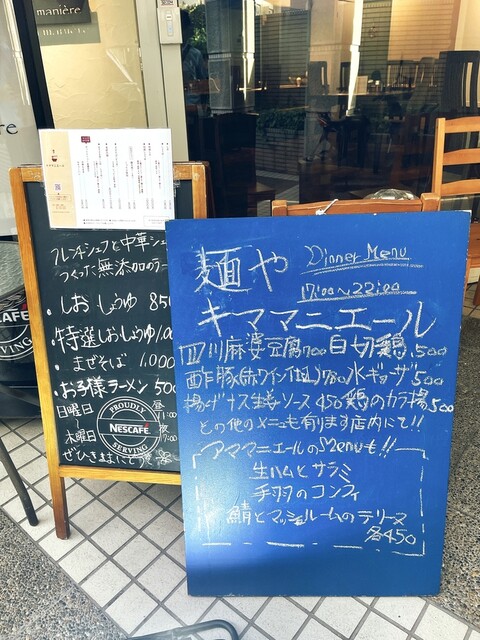 manière
フレンチシェフと中華シェ
つくった無添加のラー
・しお しょうゆ 850
・特選しおしょうゆ1,00
・まぜそば 1,000
・お子様ラーメン 500
日曜日
〜
木曜日
昼
11:00
夜
17:00
PROUDLY
NESCAFÉ
SERVING
CAFÉ
SERVING
麺や Dinner Menu
17:00〜22:00
キママニエール
四川麻婆豆腐700 白切鶏 500
酢豚(赤ワイン仕込)700 水ギョーザ500
揚げナス生姜ソース 450 鶏のカラ揚500
その他メニューも有ります店内にて!!
アママニエールのMenuも!!
生ハムとサラミ
手羽のコンフィ
鯖とマッシュルームのテリーヌ
各450